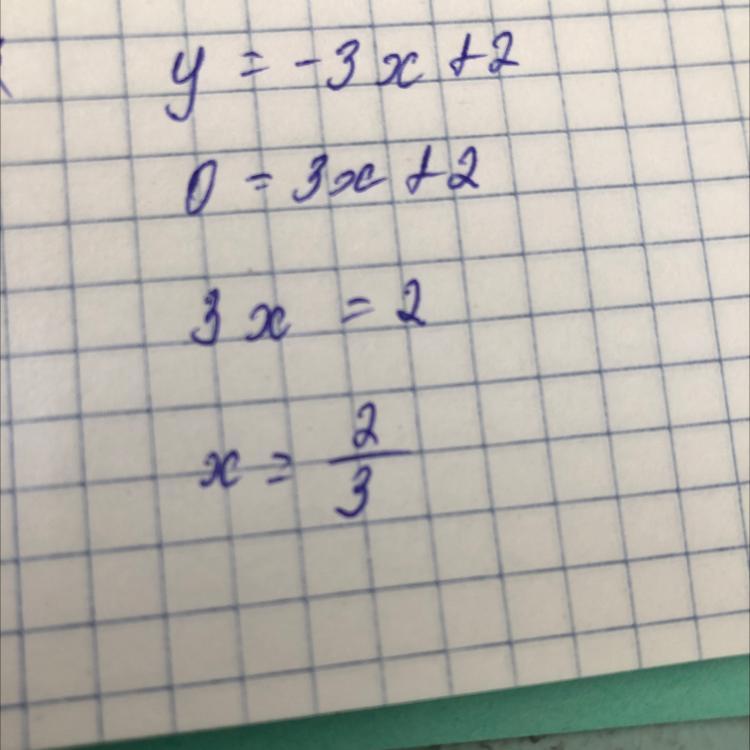 y = -3x + 2
0 = 3x + 2
3x = 2
x = 2/3